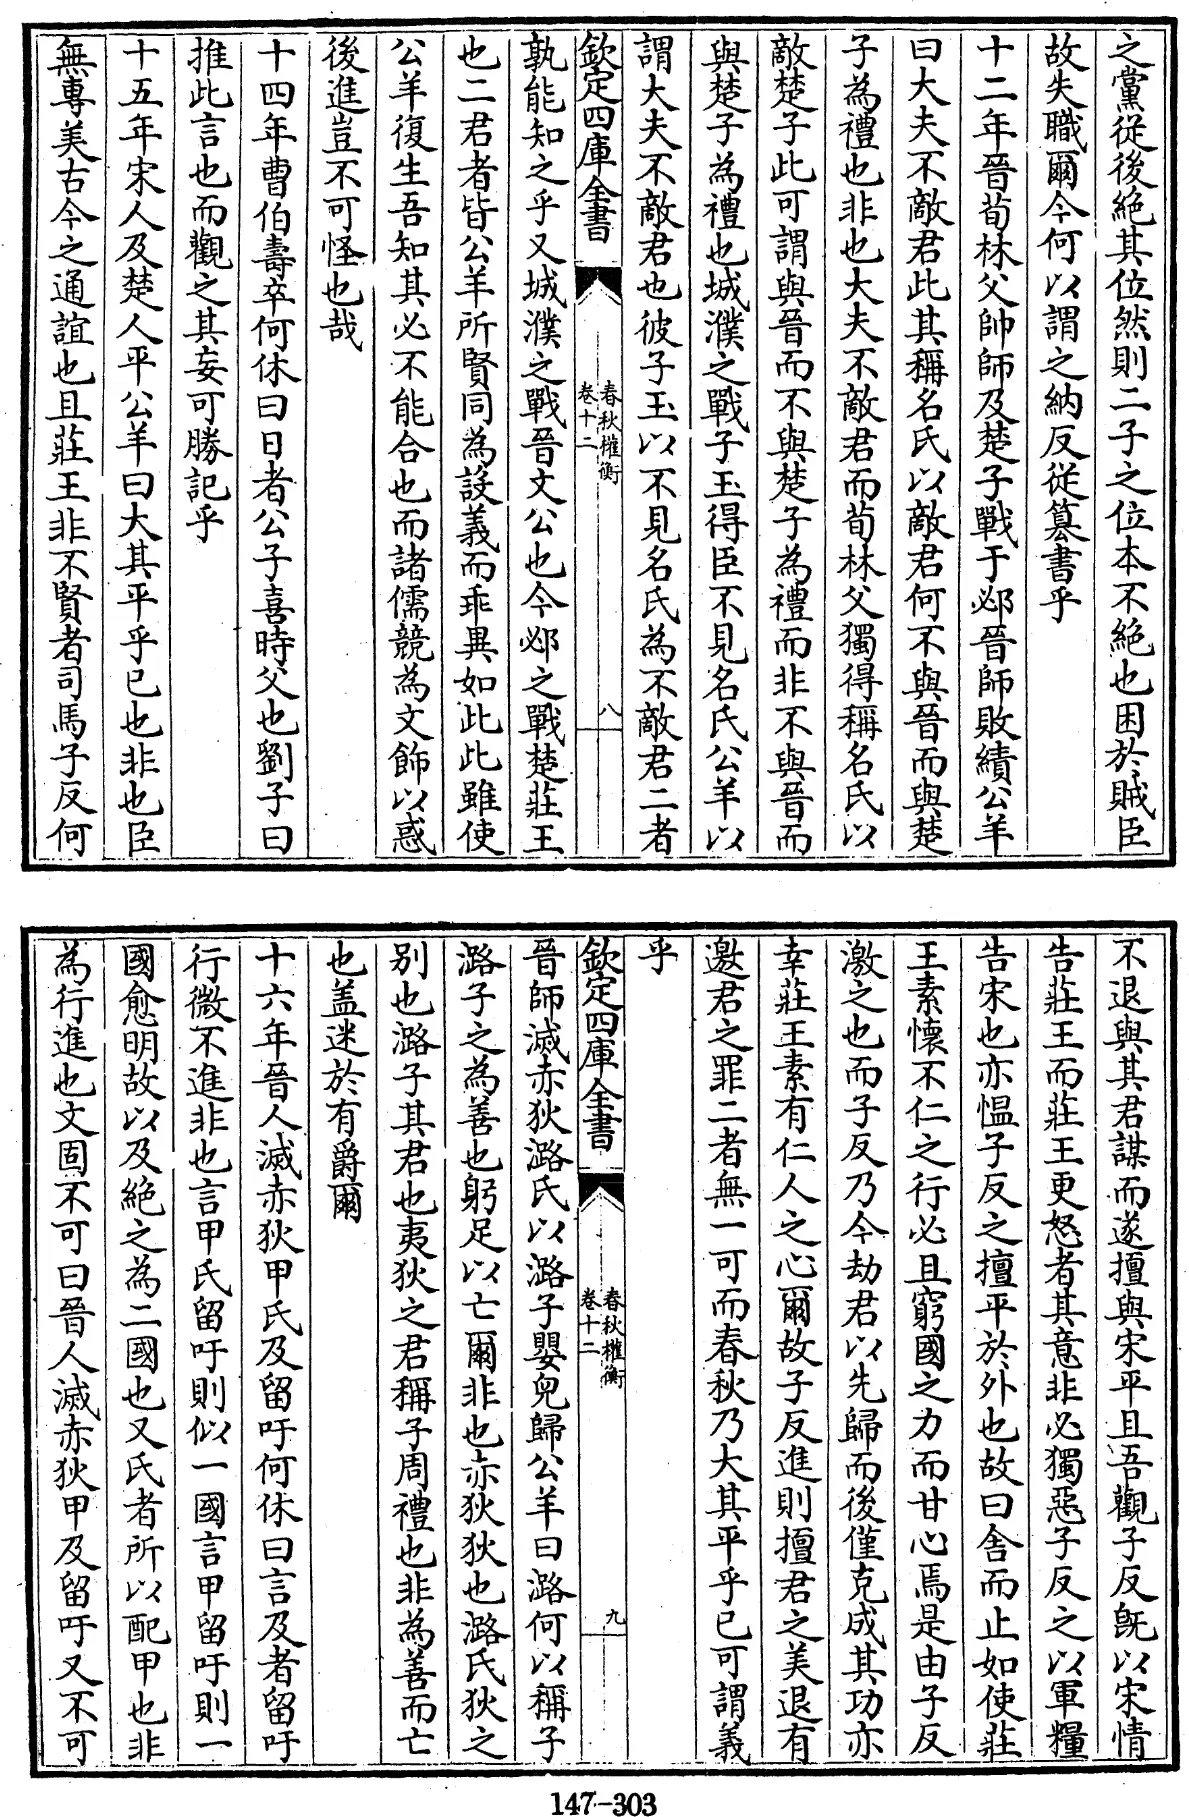 之黨從後絶其位然則二子之位本不絶也困於賊臣
故失職爾今何以謂之納反從簒書乎
十二年晉荀林父帥師及楚子戰于邲晉師敗績公羊
曰大夫不敵君此其稱名氏以敵君何不與晉而與楚
子為禮也非也大夫不敵君而荀林父獨得稱名氏以
敵楚子此可謂與晉而不與楚子為禮而非不與晉而
與楚子為禮也城濮之戰子玉得臣不見名氏公羊以
謂大夫不敵君也彼子玉以不見名氏為不敵君二者
欽定四庫全書
春秋權衡
卷十二
八
孰能知之乎又城濮之戰晉文公也今邲之戰楚莊王
也二君者皆公羊所賢同為設義而乖異如此此雖使
公羊復生吾知其必不能合也而諸儒競為文飾以惑
後進豈不可怪也哉
十四年曹伯壽卒何休曰日者公子喜時父也劉子曰
推此言也而觀之其妄可勝記乎
十五年宋人及楚人平公羊曰大其平乎已也非也臣
無專美古今之通誼也且莊王非不賢者司馬子反何
不退與其君謀而遂擅與宋平且吾觀子反旣以宋情
告莊王而莊王更怒者其意非必獨惡子反之以軍糧
告宋也亦愠子反之擅平於外也故曰舍而止如使莊
王素懷不仁之行必且窮國之力而甘心焉是由子反
激之也而子反乃今劫君以先歸而後僅克成其功亦
幸莊王素有仁人之心爾故子反進則擅君之美退有
邀君之罪二者無一可而春秋乃大其平乎已可謂義
乎
欽定四庫全書
春秋權衡
卷十二
九
晉師滅赤狄潞氏以潞子嬰兒歸公羊曰潞何以稱子
潞子之為善也躬足以亡爾非也赤狄狄也潞氏狄之
别也潞子其君也夷狄之君稱子周禮也非為善而亡
也盖迷於有爵爾
十六年晉人滅赤狄甲氏及留吁何休曰言及者留吁
行微不進非也言甲氏留吁則似一國言甲留吁則一
國愈明故以及絶之為二國也又氏者所以配甲也非
為行進也文固不可曰晉人滅赤狄甲及留吁又不可
147-303